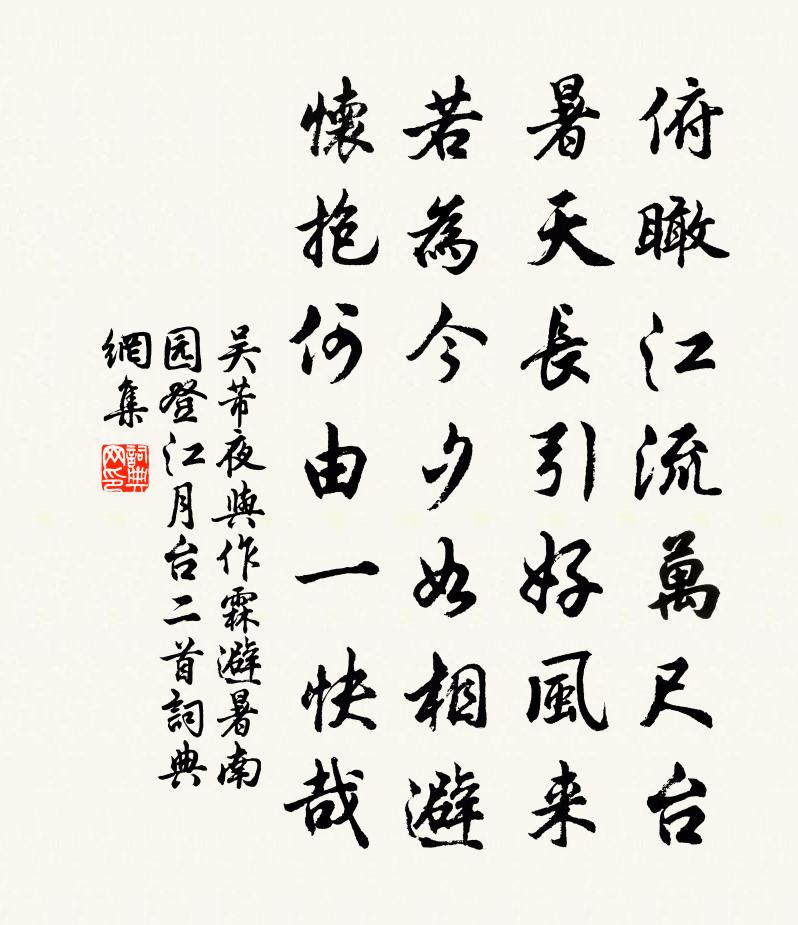 俯瞰江流萬尺台
暑天長引好風来
若為今夕如相避
懷抱何由一快哉
吴芾夜與作霖避暑南
园登江月台二首詞典
網集
詞典网印